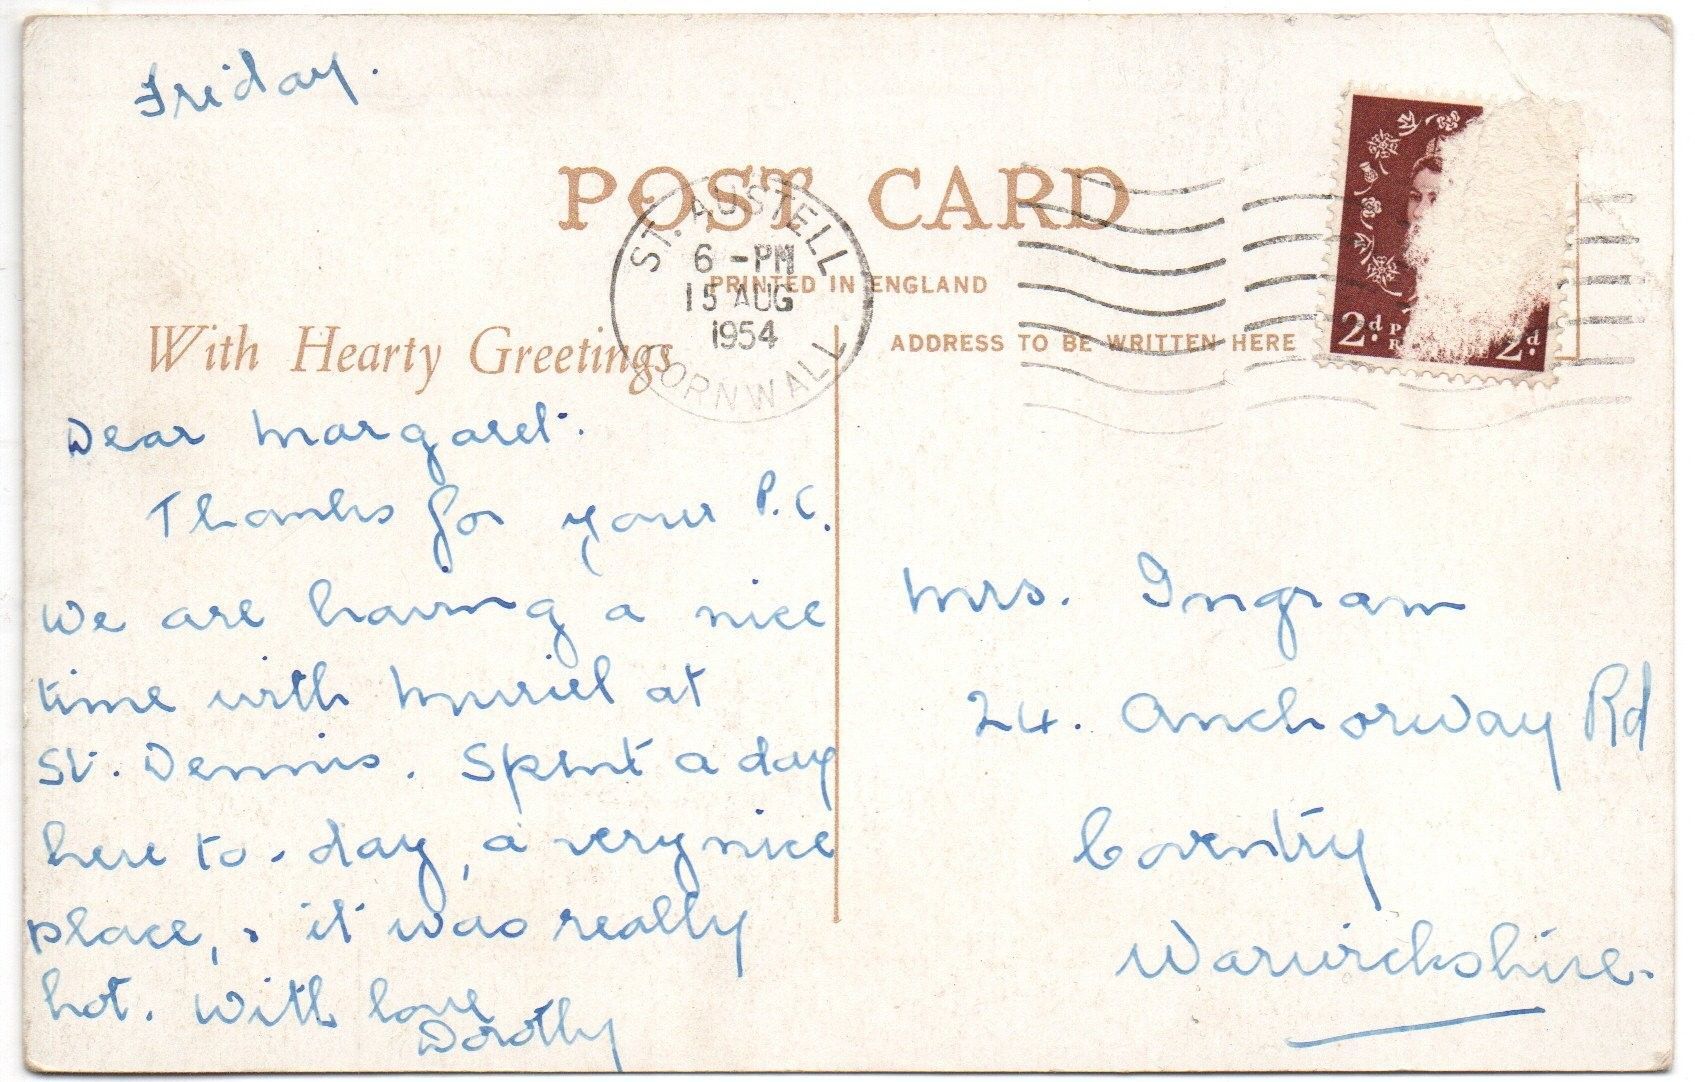 Friday.
POST CARD
ST. AUSTELL
6 - PM
15 AUG
1954
CORNWALL
PRINTED IN ENGLAND
With Hearty Greetings
ADDRESS TO BE WRITTEN HERE
2d. P
R
2d.
Dear Margaret.
Thanks for your P.C.
We are having a nice
time with Muriel at
St. Dennis. Spent a day
here to-day, a very nice
place, & it was really
hot. With love
Dorothy
Mrs. Ingram
24. Anchorway Rd
Coventry
Warwickshire.